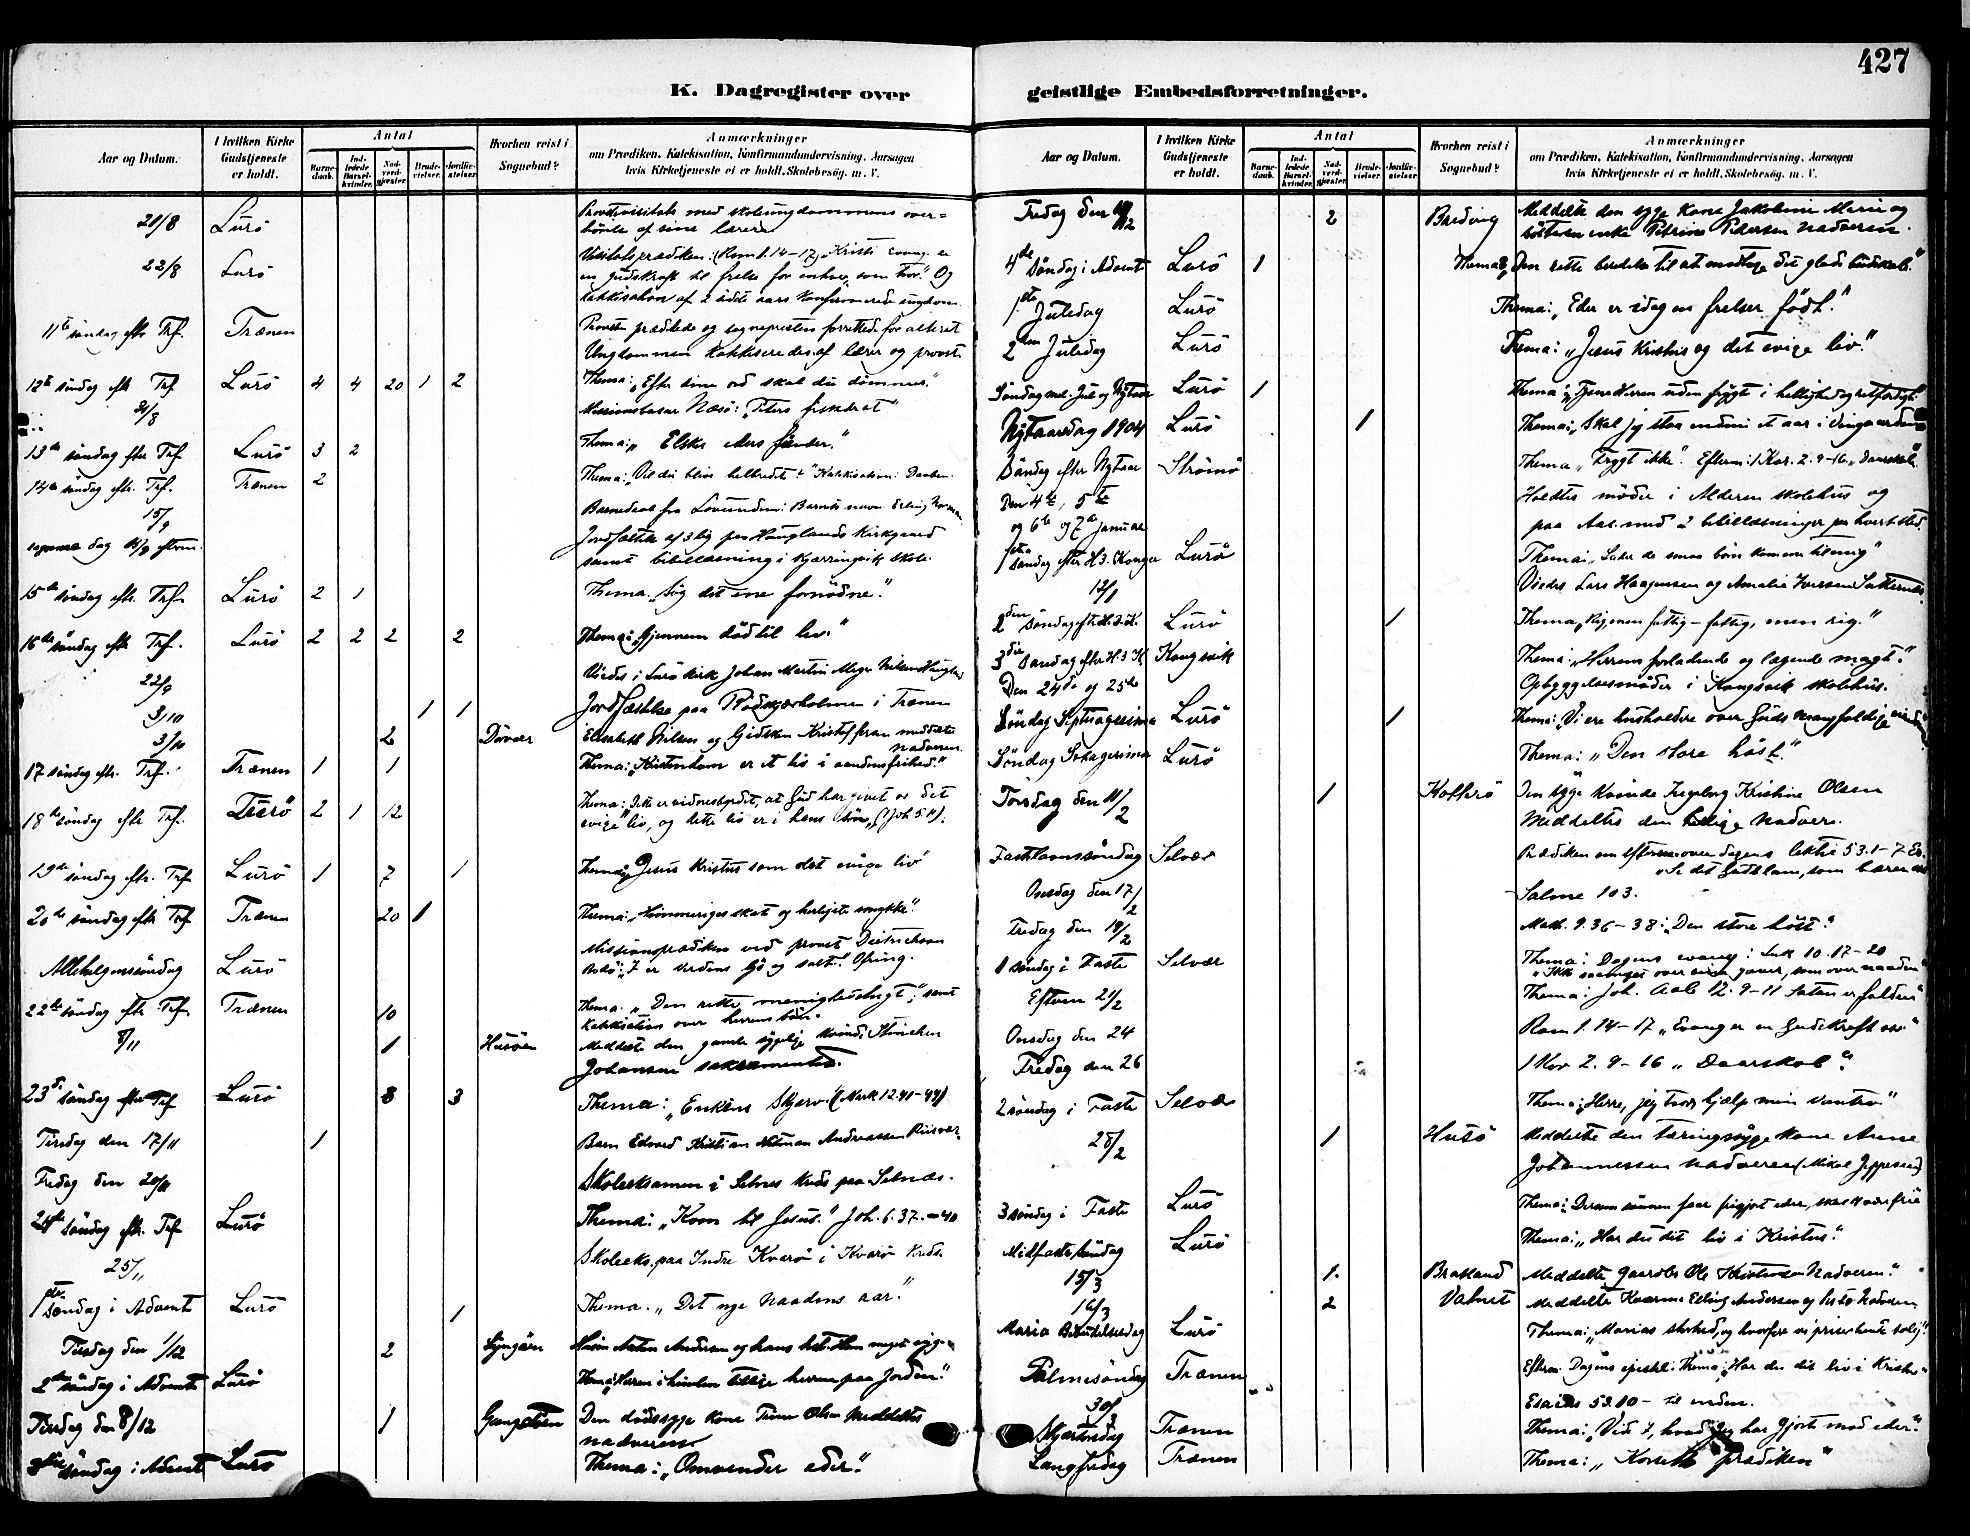 427
K. Dagregister over
geistlige Embedsforretninger.
Aar og Datum.
I hvilken Kirke Gudstjeneste er holdt.
Antal
Barnedaab.
Indledede Barselkvinder.
Nadverdgjester.
Brudevielser.
Jordfæstelser.
Hvorhen reist i Sognebud?
Anmærkninger
om Prædiken, Katekisation, Konfirmandundervisning, Aarsagen
hvis Kirketjeneste ei er holdt, Skolebesøg. m. V.
21/8 Lurö Provstevisitats med skoleungdommens over-
hörelse af sine lærere
22/8 Lurö Visitatsprædiken: (Rom 1.14-17) Kristi evang. er
en gudskraft til frelse for enhver, som tror." Og
katekisation af 2 sidste aars konfirmerede ungdom.
11te söndag eftr Trf. Trænen Provsten prædikede og sognepresten forrettede for alteret
Ungdommen katekiseredes af lærer og provst.
12te söndag eftr Trf Lurö 4 4 20 1 2 Thema: "Efter sine ord skal du dömmes."
31/8 Missionsbasar Næsö: "Peters fiskedræt"
13de söndag eftr Trf Lurö 3 2 Thema: "Elsker eders fiender."
14de söndag eftr. Trf. Trænen 2 Thema: "Vil du blive helbredet?" Katekisation: Daaben.
15/9 Barnedaab fra Lovunden: Barnets navn Erling
samme dag 15/9 eftrm. Jordfæstede af 3 lig paa Hauglands Kirkegaard
samt bibellæsning i Kjærringvik skole.
15de söndag eftr. Trf. Lurö 2 1 Thema: "Søg det ene fornödne."
16de söndag eftr Trf. Lurö 2 2 2 2 Thema: "Gjennem död til liv."
22/9 Viedes i Lurö kirke Johan Martin Meyer
3/10 1 1 Jordfæstelse paa Rödskjærholmen i Trænen
3/10 2 Dörvær Elisabeth Nilsen og Gidsken Kristoffersen meddeltes
nadveren.
17 söndag eftr. Trf. Trænen 1 1 Thema: "Kristendom er et liv i aandensfrihed."
18de söndag eftr Trf. Lurö 2 1 12 Thema: Dette er vidnesbyrdet, at Gud har givet os det
evige liv, og dette liv er i hans sön, (1 Joh 5.11).
19de söndag eftr. Trf Lurö 1 7 1 Thema: Jesus Kristus som det evige liv"
20de söndag eftr Trf Trænen 20 1 Thema: "Himmeriges skat og herligste smykke".
Allehelgenssöndag Lurö Missionsprædiken ved provst Dietrichson
I er verdens lys og salt. Ofring.
22de söndag eftr Trf Trænen 10 Thema. "Den rette menighedslyst", samt
katekisation over herrens bön.
8/11 1 Husöen Meddelt den gamle sygelige kvinde Hinriken
Johansen sakramentet.
23de söndag eftr Trf Lurö 8 3 Thema: "Enkens Skjærv" (Mark 12.41-44)
Tirsdag den 17/11 1 Barn Edvard Kristian Andreassen
Fredag den 20/11 Skoleeksamen i Selnes kreds paa Selnæs.
24de söndag eftr. Trf Lurö Thema: "Kom til Jesus." Joh. 6.37.-40
25/11 Skoleeks. paa Indre Kvarö i Kvarö kreds.
1ste söndag i Advent Lurö 1 Thema. "Det nye Naadens aar."
Tirsdag den 1/12 2 Anton Andersen og hans
2den söndag i Advent Lurö Thema: Herren i himlen tillige herren paa Jorden."
Tirsdag den 8/12 1 Den dödssyge kone Trine Olsen Meddeltes
nadveren
3die söndag i Advent Lurö Thema: "Omvender eder."
Aar og Datum.
I hvilken Kirke Gudstjeneste er holdt.
Antal
Barnedaab.
Indledede Barselkvinder.
Nadverdgjester.
Brudevielser.
Jordfæstelser.
Hvorhen reist i Sognebud?
Anmærkninger
om Prædiken, Katekisation, Konfirmandundervisning, Aarsagen
hvis Kirketjeneste ei er holdt, Skolebesøg. m. V.
Fredag den 2 Bredvig Meddelte den syge kone Jakobine Marie og
söstren enke Petrine Petersen nadveren.
4de Söndag i Advent Lurö 1 Thema: Den rette beredelse til at modtage det glade budskab."
1ste Juledag Lurö Thema: "Eder er idag en frelser födt."
2den Juledag Lurö Thema: "Jesus Kristus og det evige liv."
Söndag ml. Jul og Nytaar Lurö 1 Thema: Tjene Herren uden frygt i hellighed og retfærdighed.
Nytaarsdag 1904 Lurö 1 Thema: "Skal jeg staa endnu et aar i vingaarden
Söndag efter Nytaar Strömö Thema "Frygt ikke". Efterm: 1 Kor. 2.9-16 "Daarskab."
Den 4de, 5te Holdtes möder i Alderen skolehus og
og 6te og 7de januar paa Aar. med 2 bibellæsninger paa hvert sted.
1ste söndag efter H.3. Konger Lurö Thema: Lader de smaa börn komme til mig"
12/1 Viedes Lars Haagensen og Amalie Iversen
2den söndag eftr H.3.K. Lurö 1 Thema "Rigmen fattig - fattig, men rig."
3die Söndag efter H 3 K Kongsvik Thema: "Herrens forladende og lægende magt."
Den 24de og 25de Opbyggelsesmöder i Kongsvik skolehus.
Söndag Septuagesima Lurö 1 Thema: "Vi ere husholdere over Guds mangfoldige
Söndag Seksagesima Lurö Thema: "Den store höst."
Torsdag den 11/2 1 Kotterö Den syge kvinde Ingeborg Kristine Olsen
Meddeltes den hellige Nadvere.
Fastelavnssöndag Selvær Prædiken om efterm. over dagens lektie 53.1-7 Es.
"Se det Guds lam, som bærer
Onsdag den 17/2 Salme 103.
Fredag den 19/2 Math. 9.36-38: "Den store höst."
1 söndag i Faste Selvær Thema: Dagens evang: Luk 10.17-20
Efterm 21/2 Thema: Joh. Aab 12.9-11 Satan er falden"
Onsdag den 24 Rom 1.14-17 "Evang er en Guds Kraft
Fredag den 26 1 Kor 2.9-16 "Daarskab".
2 söndag i Faste Selvær Thema: Herre, jeg tror, hjælp min vantro"
28/2 1 Husö Meddelte den tæringssyge kone Anne
Johannessen nadveren (Mikal Jeppesen)
3 söndag i Faste Lurö Thema: Dersom sönnen faar frigjort eder, skal I være frie
Midfastesöndag Lurö Thema: "Har du dit liv i Kristus".
15/3 1. Bratland Meddelte Gaardbr. Ole Kristensen Nadveren".
16/3 2 Vatnet Meddelte Kværnes Elling Andersen og Nadveren
Mariæ Budskabsdag Lurö Thema: "Marias storhed, og hvorfor vi prise hende salig".
Palmesöndag Trænen Efterm. Dagens epistel: Thema: Har du dit liv i Kristus
30/3 Esaias 53.10 - til enden.
Skjærtorsdag Trænen Thema: "Vid I, hvad jeg har gjort mod eder".
Langfredag Trænen Thema: "Korsets prædiken"